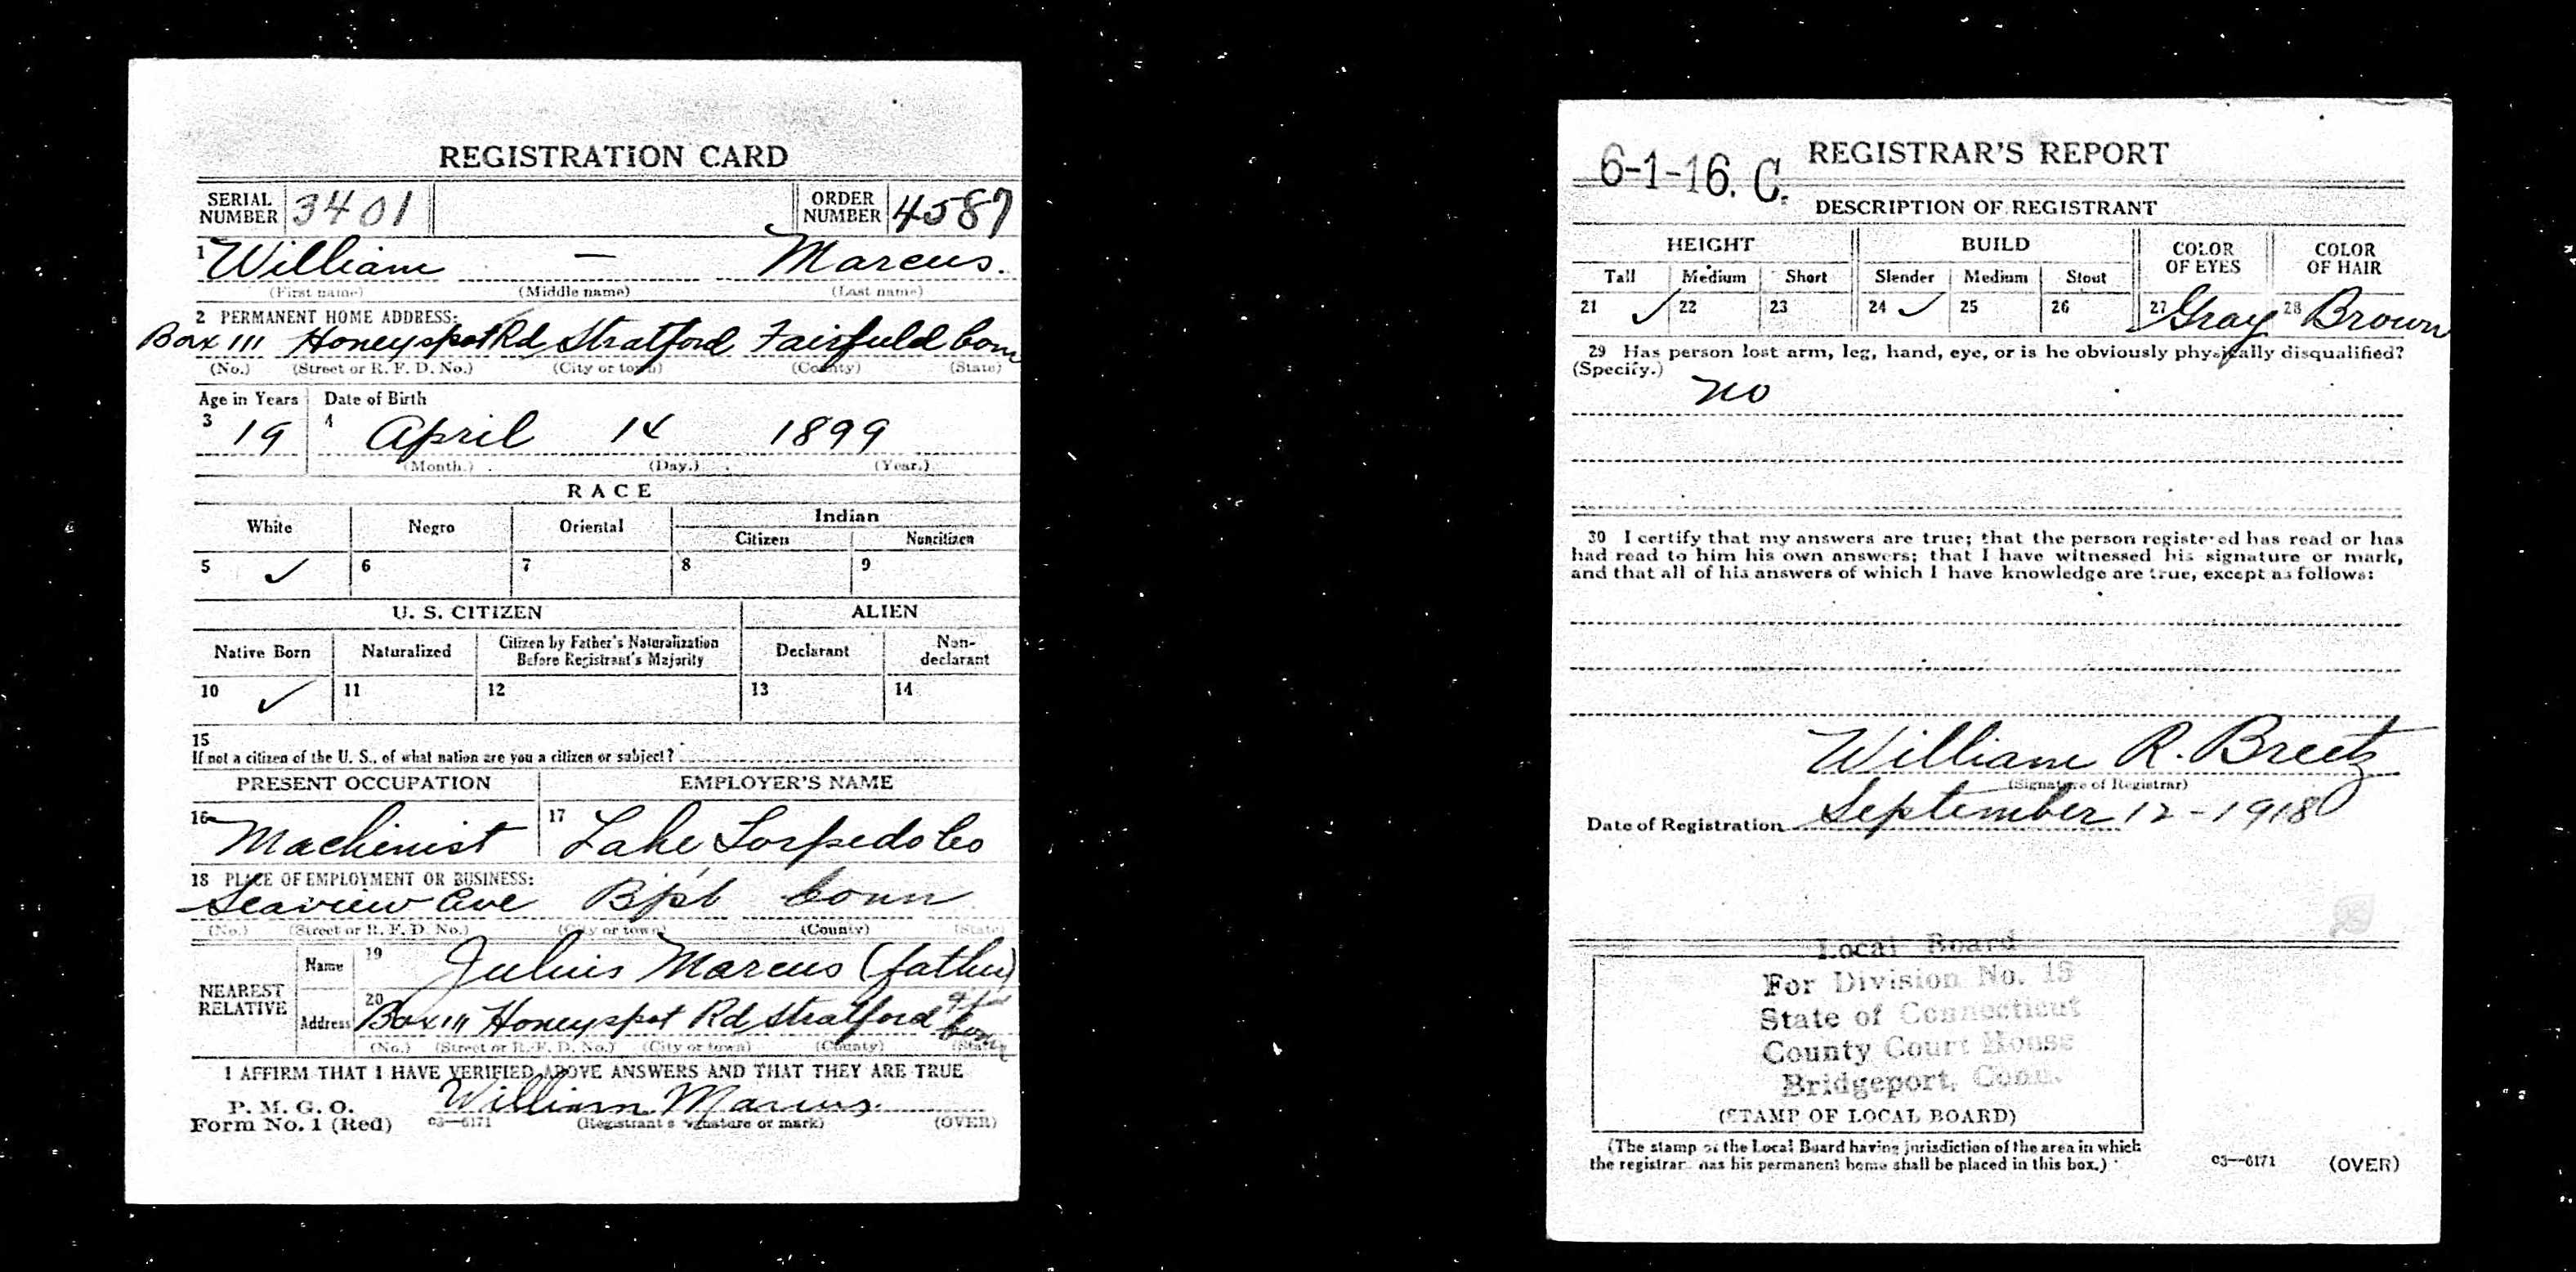 REGISTRATION CARD
SERIAL NUMBER 3401 ORDER NUMBER 4587
1 William — Marcus.
(First name) (Middle name) (Last name)
2 PERMANENT HOME ADDRESS:
Box 111 Honeyspot Rd Stratford Fairfield Conn
(No.) (Street or R. F. D. No.) (City or town) (County) (State)
Age in Years Date of Birth
3 19 4 April 14 1899
(Month.) (Day.) (Year.)
RACE
White Negro Oriental Indian
Citizen Noncitizen
5 ✓ 6 7 8 9
U. S. CITIZEN ALIEN
Native Born Naturalized Citizen by Father's Naturalization Before Registrant's Majority Declarant Non-declarant
10 ✓ 11 12 13 14
15
If not a citizen of the U. S., of what nation are you a citizen or subject?
PRESENT OCCUPATION EMPLOYER'S NAME
16 Machinist 17 Lake Torpedo Co
18 PLACE OF EMPLOYMENT OR BUSINESS:
Seaview Ave Bpt Conn
(No.) (Street or R. F. D. No.) (City or town) (County) (State)
NEAREST RELATIVE Name 19 Julius Marcus (father)
Address 20 Box 111 Honeyspot Rd Stratford Conn
(No.) (Street or R. F. D. No.) (City or town) (County) (State)
I AFFIRM THAT I HAVE VERIFIED ABOVE ANSWERS AND THAT THEY ARE TRUE
P. M. G. O.
Form No. 1 (Red) 03—6171 William Marcus
(Registrant's signature or mark) (OVER)
6-1-16. C. REGISTRAR'S REPORT
DESCRIPTION OF REGISTRANT
HEIGHT BUILD COLOR OF EYES COLOR OF HAIR
Tall Medium Short Slender Medium Stout
21 ✓ 22 23 24 ✓ 25 26 27 Gray 28 Brown
29 Has person lost arm, leg, hand, eye, or is he obviously physically disqualified?
(Specify.) no
30 I certify that my answers are true; that the person registered has read or has
had read to him his own answers; that I have witnessed his signature or mark,
and that all of his answers of which I have knowledge are true, except as follows:
William R. Breetz
(Signature of Registrar)
Date of Registration September 12-1918
Local Board
For Division No. 15
State of Connecticut
County Court House
Bridgeport, Conn.
(STAMP OF LOCAL BOARD)
(The stamp of the Local Board having jurisdiction of the area in which
the registrant has his permanent home shall be placed in this box.) 03—6171 (OVER)